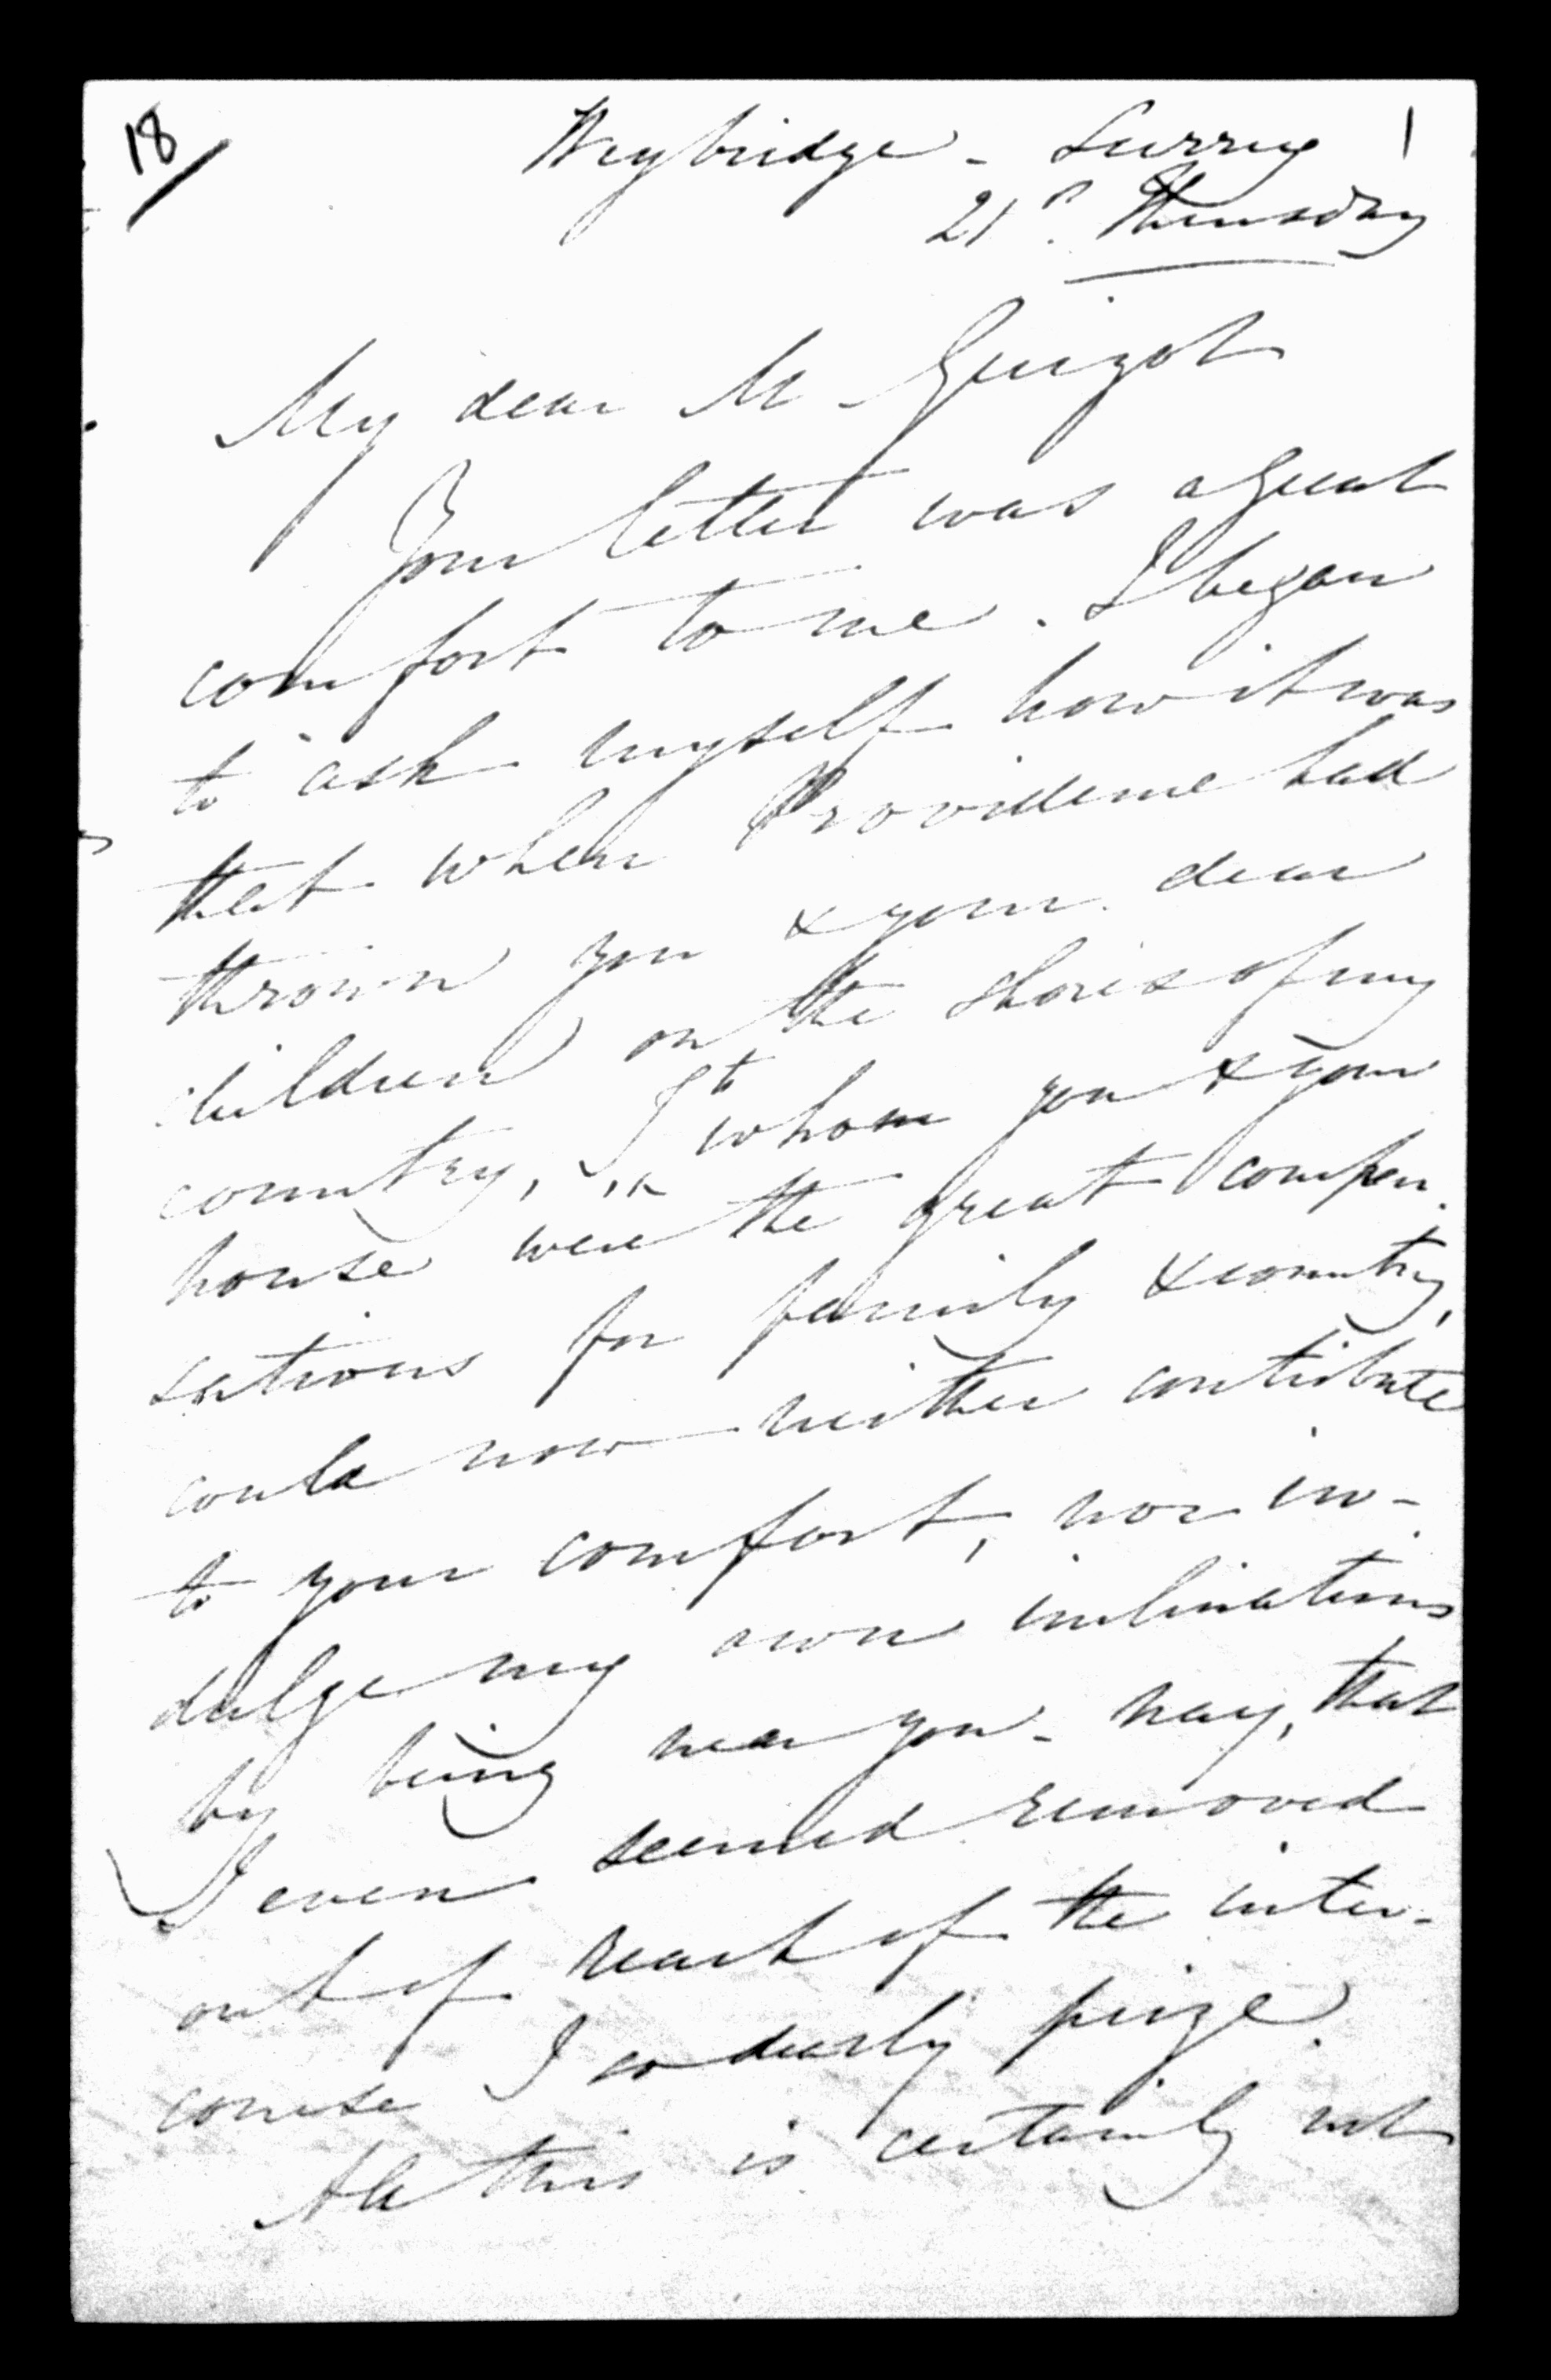 18
Weybridge - Surrey 1
21st. Thursday
My dear M. Guizot
Your letter was a great
comfort to me. I began
to ask myself how it was
that when Providence had
thrown you & your dear
children on the shores of my
country, I to whom you & your
house were the great compen-
sations for family & country,
could now neither contribute
to your comfort, nor in-
dulge my own inclinations
by being near you - nay, that
I even seemed removed
out of reach of the inter-
course I so dearly prize.
All this is certainly not